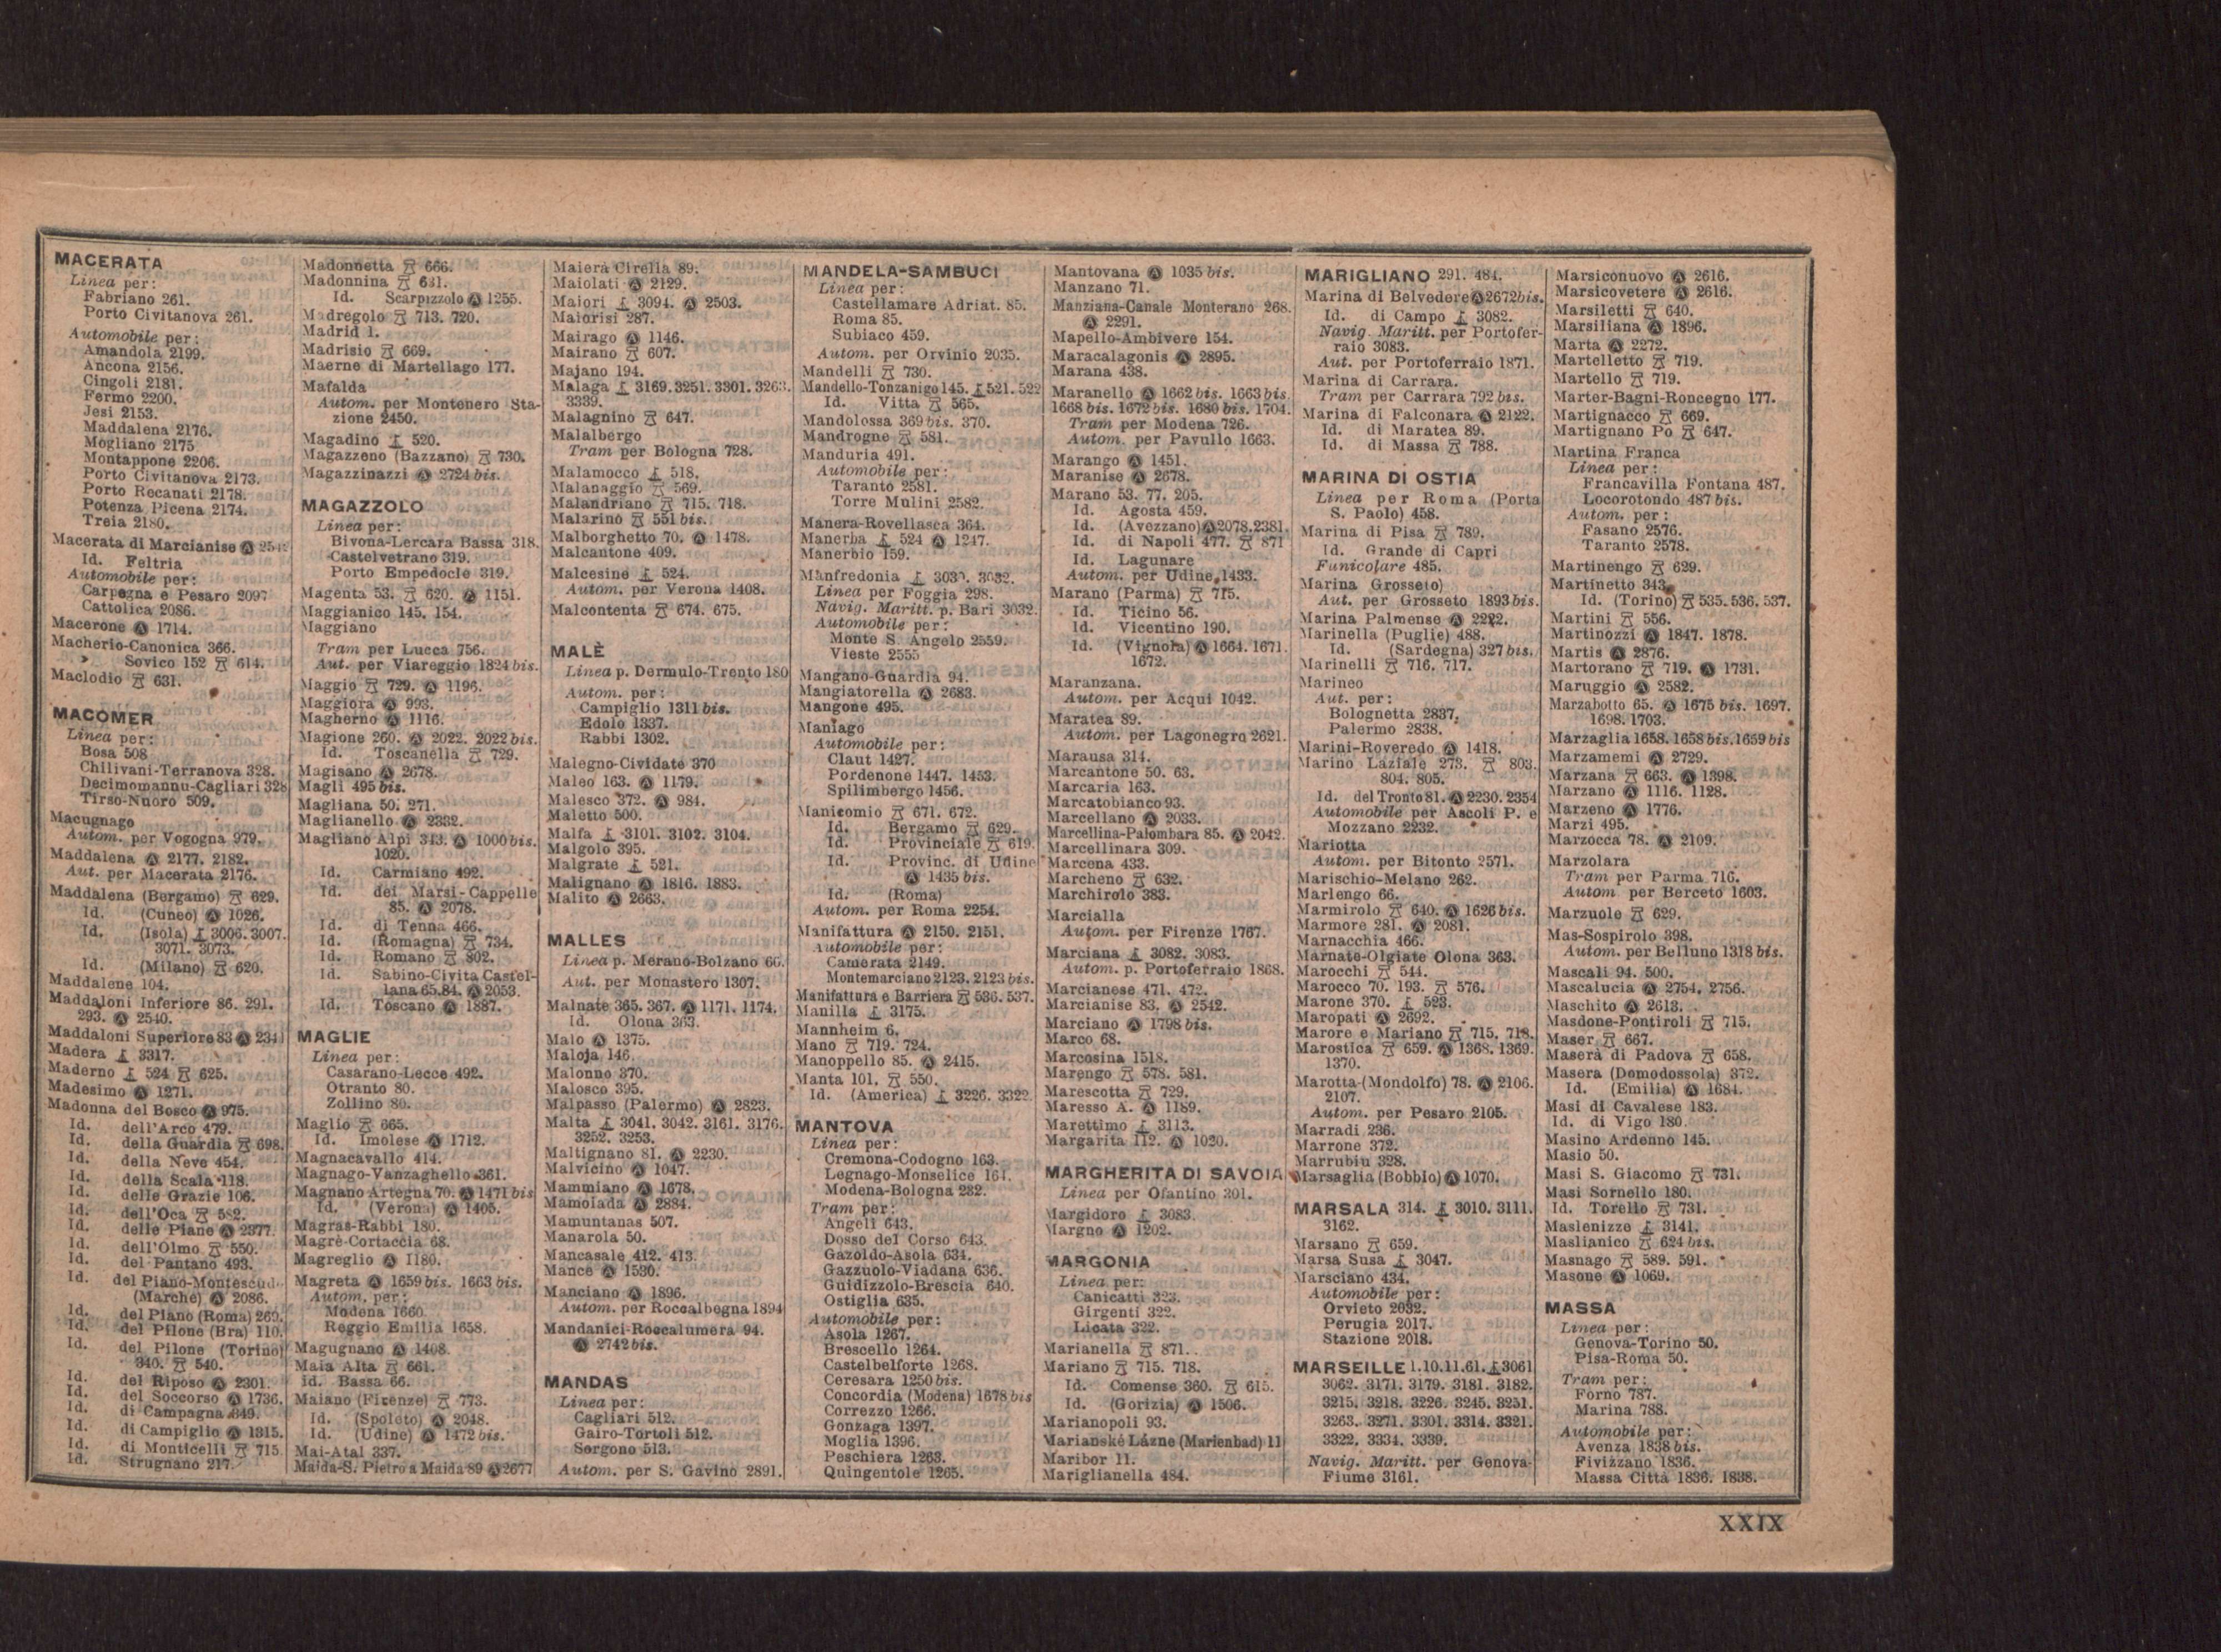 MACERATA
Linea per:
Fabriano 261.
Porto Civitanova 261.
Automobile per:
Amandola 2199.
Ancona 2156.
Cingoli 2181.
Fermo 2200.
Jesi 2153.
Maddalena 2176.
Mogliano 2175
Montappone 2206.
Porto Civitanova 2173.
Porto Recanati 2178.
Potenza Picena 2174.
Treia 2180.
Macerata di Marcianise Ⓐ
Id. Feltria
Automobile per:
Carpegna e Pesaro 2097
Cattolica 2086.
Macerone Ⓐ 1714.
Macherio-Canonica 366.
» Sovico 152 614.
Maclodio 631.
MACOMER
Linea per:
Bosa 508
Chilivani-Terranova 328.
Decimomannu-Cagliari 328
Tirso-Nuoro 509.
Macugnago
Autom. per Vogogna 979.
Maddalena Ⓐ 2177. 2182.
Aut. per Macerata 2176.
Maddalena (Bergamo) 629.
Id. (Cuneo) Ⓐ 1026.
Id. (Isola) 3006. 3007.
3071. 3073.
Id. (Milano) 620.
Maddalene 104.
Maddaloni Inferiore 86. 291.
293. Ⓐ 2540.
Maddaloni Superiore 83 Ⓐ 2341
Madera 3317.
Maderno 524 625.
Madesimo Ⓐ 1271.
Madonna del Bosco Ⓐ 975.
Id. dell'Arco 479.
Id. della Guardia 698.
Id. della Neve 454.
Id. della Scala 118.
Id. delle Grazie 106.
Id. dell'Oca 582.
Id. delle Piane Ⓐ 2377.
Id. dell'Olmo 550.
Id. del Pantano 493.
Id. del Piano-Montescud.
(Marche) Ⓐ 2086.
Id. del Piano (Roma) 269.
Id. del Pilone (Bra) 110.
Id. del Pilone (Torino)
340. 540.
Id. del Riposo Ⓐ 2301.
Id. del Soccorso Ⓐ 1736.
Id. di Campagna 649.
Id. di Campiglio Ⓐ 1315.
Id. di Monticelli 715.
Id. Strugnano 217.
Madonnetta 666.
Madonnina 631.
Id. Scarpizzolo Ⓐ 1255.
Madregolo 713. 720.
Madrid 1.
Madrisio 669.
Maerne di Martellago 177.
Mafalda
Autom. per Montenero Sta-
zione 2450.
Magadino 520.
Magazzeno (Bazzano) 730.
Magazzinazzi Ⓐ 2724 bis.
MAGAZZOLO
Linea per:
Bivona-Lercara Bassa 318.
Castelvetrano 319.
Porto Empedocle 319.
Magenta 53. 620. Ⓐ 1151.
Maggianico 145. 154.
Maggiano
Tram per Lucca 756.
Aut. per Viareggio 1824 bis.
Maggio 729. Ⓐ 1196.
Maggiora Ⓐ 993.
Magherno Ⓐ 1116.
Magione 260. Ⓐ 2022. 2022 bis.
Id. Toscanella 729.
Magisano Ⓐ 2678.
Magli 495 bis.
Magliana 50. 271.
Maglianello Ⓐ 2332.
Magliano Alpi 343. Ⓐ 1000 bis.
1020.
Id. Carmiano 492.
Id. dei Marsi-Cappelle
85. Ⓐ 2078.
Id. di Tenna 466.
Id. (Romagna) 734.
Id. Romano 802.
Id. Sabino-Civita Castel-
lana 65.84. Ⓐ 2053.
Id. Toscano Ⓐ 1887.
MAGLIE
Linea per:
Casarano-Lecce 492.
Otranto 80.
Zollino 80.
Maglio 665.
Id. Imolese Ⓐ 1712.
Magnacavallo 414.
Magnago-Vanzaghello 361.
Magnano Artegna 70. Ⓐ 1471 bis
Id. (Verona) Ⓐ 1405.
Magras-Rabbi 180.
Magrè-Cortaccia 68.
Magreglio Ⓐ 1180.
Magreta Ⓐ 1659 bis. 1663 bis.
Autom. per:
Modena 1660.
Reggio Emilia 1658.
Magugnano Ⓐ 1408.
Maia Alta 661.
id. Bassa 66.
Maiano (Firenze) 773.
Id. (Spoleto) Ⓐ 2048.
Id. (Udine) Ⓐ 1472 bis.
Mai-Atal 337.
Maida-S. Pietro a Maida 89 Ⓐ 2677
Maierà Cirella 89.
Maiolati Ⓐ 2129.
Maiori 3094. Ⓐ 2503.
Maiorisi 287.
Mairago Ⓐ 1146.
Mairano 607.
Majano 194.
Malaga 3169. 3251. 3301. 3263.
3339.
Malagnino 647.
Malalbergo
Tram per Bologna 728.
Malamocco 518.
Malanaggio 569.
Malandriano 715. 718.
Malarino 551 bis.
Malborghetto 70. Ⓐ 1478.
Malcantone 409.
Malcesine 524.
Autom. per Verona 1408.
Malcontenta 674. 675.
MALÈ
Linea p. Dermulo-Trento 180
Autom. per:
Campiglio 1311 bis.
Edolo 1337.
Rabbi 1302.
Malegno-Cividate 370
Maleo 163. Ⓐ 1179.
Malesco 372. Ⓐ 984.
Maletto 500.
Malfa 3101. 3102. 3104.
Malgolo 395.
Malgrate 521.
Malignano Ⓐ 1816. 1883.
Malito Ⓐ 2663.
MALLES
Linea p. Merano-Bolzano 66.
Aut. per Monastero 1307.
Malnate 365. 367. Ⓐ 1171. 1174.
Id. Olona 363.
Malo Ⓐ 1375.
Maloja 146.
Malonno 370.
Malosco 395.
Malpasso (Palermo) Ⓐ 2823.
Malta 3041. 3042. 3161. 3176.
3252. 3253.
Maltignano 81. Ⓐ 2230.
Malvicino Ⓐ 1047.
Mammiano Ⓐ 1678.
Mamoiada Ⓐ 2884.
Mamuntanas 507.
Manarola 50.
Mancasale 412. 413.
Mance Ⓐ 1530.
Manciano Ⓐ 1896.
Autom. per Roccalbegna 1894
Mandanici-Roccalumera 94.
Ⓐ 2742 bis.
MANDAS
Linea per:
Cagliari 512.
Gairo-Tortoli 512.
Sorgono 513.
Autom. per S. Gavino 2891.
MANDELA-SAMBUCI
Linea per:
Castellamare Adriat. 85.
Roma 85.
Subiaco 459.
Autom. per Orvinio 2035.
Mandelli 730.
Mandello-Tonzanigo 145. 521. 522
Id. Vitta 565.
Mandolossa 369 bis. 370.
Mandrogne 581.
Manduria 491.
Automobile per:
Taranto 2581.
Torre Mulini 2582.
Manera-Rovellasca 364.
Manerba 524 Ⓐ 1247.
Manerbio 159.
Manfredonia 3032.
Linea per Foggia 298.
Navig. Maritt. p. Bari 3032.
Automobile per:
Monte S. Angelo 2559.
Vieste 2555
Mangano-Guardia 94.
Mangiatorella Ⓐ 2683.
Mangone 495.
Maniago
Automobile per:
Claut 1427.
Pordenone 1447. 1453.
Spilimbergo 1456.
Manicomio 671. 672.
Id. Bergamo 629.
Id. Provinciale 619.
Id. Provinc. di Udine
Ⓐ 1435 bis.
Id. (Roma)
Autom. per Roma 2254.
Manifattura Ⓐ 2150. 2151.
Automobile per:
Camerata 2149.
Montemarciano 2123. 2123 bis.
Manifattura e Barriera 536. 537.
Manilla 3175.
Mannheim 6.
Mano 719. 724.
Manoppello 85. Ⓐ 2415.
Manta 101. 550.
Id. (America) 3226. 3322
MANTOVA
Linea per:
Cremona-Codogno 163.
Legnago-Monselice 164.
Modena-Bologna 282.
Tram per:
Angeli 643.
Dosso del Corso 643.
Gazoldo-Asola 634.
Gazzuolo-Viadana 636.
Guidizzolo-Brescia 640.
Ostiglia 635.
Automobile per:
Asola 1267.
Brescello 1264.
Castelbelforte 1268.
Ceresara 1250 bis.
Concordia (Modena) 1678 bis
Correzzo 1266.
Gonzaga 1397.
Moglia 1396.
Peschiera 1263.
Quingentole 1265.
Mantovana Ⓐ 1035 bis.
Manzano 71.
Manziana-Canale Monterano 268.
Ⓐ 2291.
Mapello-Ambivere 154.
Maracalagonis Ⓐ 2895.
Marana 438.
Maranello Ⓐ 1662 bis. 1663 bis
1668 bis. 1672 bis. 1680 bis. 1704.
Tram per Modena 726.
Autom. per Pavullo 1663.
Marango Ⓐ 1451.
Maranise Ⓐ 2678.
Marano 53. 77. 205.
Id. Agosta 459.
Id. (Avezzano) Ⓐ 2078. 2381.
Id. di Napoli 477. 871
Id. Lagunare
Autom. per Udine 1433.
Marano (Parma) 715.
Id. Ticino 56.
Id. Vicentino 190.
Id. (Vignola) Ⓐ 1664. 1671.
1672.
Maranzana.
Autom. per Acqui 1042.
Maratea 89.
Autom. per Lagonegro 2621.
Marausa 314.
Marcantone 50. 63.
Marcaria 163.
Marcatobianco 93.
Marcellano Ⓐ 2033.
Marcellina-Palombara 85. Ⓐ 2042.
Marcellinara 309.
Marcena 433.
Marcheno 632.
Marchirolo 383.
Marcialla
Autom. per Firenze 1767.
Marciana 3082. 3083.
Autom. p. Portoferraio 1868.
Marcianese 471. 472.
Marcianise 83. Ⓐ 2542.
Marciano Ⓐ 1798 bis.
Marco 68.
Marcosina 1518.
Marengo 578. 581.
Marescotta 729.
Maresso A. Ⓐ 1189.
Marettimo 3113.
Margarita 112. Ⓐ 1020.
MARGHERITA DI SAVOIA
Linea per Ofantino 301.
Margidoro 3083.
Margno Ⓐ 1202.
MARGONIA
Linea per:
Canicattì 323.
Girgenti 322.
Licata 322.
Marianella 871.
Mariano 715. 718.
Id. Comense 360. 615.
Id. (Gorizia) Ⓐ 1506.
Marianopoli 93.
Marianské Lázne (Marienbad) 11
Maribor 11.
Mariglianella 484.
MARIGLIANO 291. 484.
Marina di Belvedere Ⓐ 2672 bis.
Id. di Campo 3082.
Navig. Maritt. per Portofer-
raio 3083.
Aut. per Portoferraio 1871.
Marina di Carrara.
Tram per Carrara 792 bis.
Marina di Falconara Ⓐ 2122.
Id. di Maratea 89.
Id. di Massa 788.
MARINA DI OSTIA
Linea per Roma (Porta
S. Paolo) 458.
Marina di Pisa 789.
Id. Grande di Capri
Funicolare 485.
Marina Grosseto)
Aut. per Grosseto 1893 bis.
Marina Palmense Ⓐ 2222.
Marinella (Puglie) 488.
Id. (Sardegna) 327 bis.
Marinelli 716. 717.
Marineo
Aut. per:
Bolognetta 2837.
Palermo 2838.
Marini-Roveredo Ⓐ 1418.
Marino Laziale 273. 803.
804. 805.
Id. del Tronto 81. Ⓐ 2230. 2354
Automobile per Ascoli P. e
Mozzano 2232.
Mariotta
Autom. per Bitonto 2571.
Marischio-Melano 262.
Marlengo 66.
Marmirolo 640. Ⓐ 1626 bis.
Marmore 281. Ⓐ 2081.
Marnacchia 466.
Marnate-Olgiate Olona 363.
Marocchi 544.
Marocco 70. 193. 576.
Marone 370. 523.
Maropati Ⓐ 2692.
Marore e Mariano 715. 718.
Marostica 659. Ⓐ 1368. 1369.
1370.
Marotta-(Mondolfo) 78. Ⓐ 2106.
2107.
Autom. per Pesaro 2105.
Marradi 236.
Marrone 372.
Marrubiu 328.
Marsaglia (Bobbio) Ⓐ 1070.
MARSALA 314. 3010. 3111.
3162.
Marsano 659.
Marsa Susa 3047.
Marsciano 434.
Automobile per:
Orvieto 2032.
Perugia 2017.
Stazione 2018.
MARSEILLE 1.10.11.61. 3061
3062. 3171. 3179. 3181. 3182.
3215. 3218. 3226. 3245. 3251.
3263. 3271. 3301. 3314. 3321.
3322. 3334. 3339.
Navig. Maritt. per Genova-
Fiume 3161.
Marsiconuovo Ⓐ 2616.
Marsicovetere Ⓐ 2616.
Marsiletti 640.
Marsiliana Ⓐ 1896.
Marta Ⓐ 2272.
Martelletto 719.
Martello 719.
Marter-Bagni-Roncegno 177.
Martignacco 669.
Martignano Po 647.
Martina Franca
Linea per:
Francavilla Fontana 487.
Locorotondo 487 bis.
Autom. per:
Fasano 2576.
Taranto 2578.
Martinengo 629.
Martinetto 343.
Id. (Torino) 535. 536. 537.
Martini 556.
Martinozzi Ⓐ 1847. 1878.
Martis Ⓐ 2876.
Martorano 719. Ⓐ 1731.
Maruggio Ⓐ 2582.
Marzabotto 65. Ⓐ 1675 bis. 1697.
1698. 1703.
Marzaglia 1658. 1658 bis. 1659 bis
Marzamemi Ⓐ 2729.
Marzana 663. Ⓐ 1398.
Marzano Ⓐ 1116. 1128.
Marzeno Ⓐ 1776.
Marzi 495.
Marzocca 78. Ⓐ 2109.
Marzolara
Tram per Parma 716.
Autom. per Berceto 1603.
Marzuole 629.
Mas-Sospirolo 398.
Autom. per Belluno 1318 bis.
Mascali 94. 500.
Mascalucia Ⓐ 2754. 2756.
Maschito Ⓐ 2613.
Masdone-Pontiroli 715.
Maser 667.
Maserà di Padova 658.
Masera (Domodossola) 372.
Id. (Emilia) Ⓐ 1684.
Masi di Cavalese 183.
Id. di Vigo 180.
Masino Ardenno 145.
Masio 50.
Masi S. Giacomo 731.
Masi Sornello 180.
Id. Torello 731.
Maslenizze 3141.
Maslianico 624 bis.
Masnago 589. 591.
Masone Ⓐ 1069.
MASSA
Linea per:
Genova-Torino 50.
Pisa-Roma 50.
Tram per:
Forno 787.
Marina 788.
Automobile per:
Avenza 1838 bis.
Fivizzano 1836.
Massa Città 1836. 1838.
XXIX